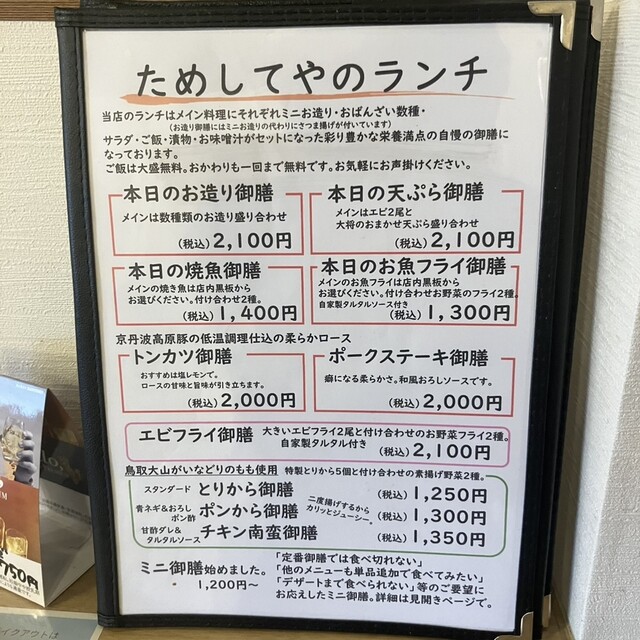 ためしてやのランチ
当店のランチはメイン料理にそれぞれミニお造り・おばんざい数種・
(お造り御膳にはミニお造りの代わりにさつま揚げが付いています)
サラダ・ご飯・漬物・お味噌汁がセットになった彩り豊かな栄養満点の自慢の御膳に
なっております。
ご飯は大盛無料。おかわりも一回まで無料です。お気軽にお声掛けください。
本日のお造り御膳
メインは数種類のお造り盛り合わせ
(税込) 2,100円
本日の天ぷら御膳
メインはエビ2尾と
大将のおまかせ天ぷら盛り合わせ
(税込) 2,100円
本日の焼魚御膳
メインの焼き魚は店内黒板から
お選びください。付け合わせ2種。
(税込) 1,400円
本日のお魚フライ御膳
メインのお魚フライは店内黒板から
お選びください。付け合わせお野菜のフライ2種。
自家製タルタルソース付き
(税込) 1,300円
京丹波高原豚の低温調理仕込の柔らかロース
トンカツ御膳
おすすめは塩レモンで。
ロースの甘味と旨味が引き立ちます。
(税込) 2,000円
ポークステーキ御膳
癖になる柔らかさ。和風おろしソースです。
(税込) 2,000円
エビフライ御膳 大きいエビフライ2尾と付け合わせのお野菜フライ2種。
自家製タルタル付き
(税込) 2,100円
鳥取大山がいなどりのもも使用 特製とりから5個と付け合わせの素揚げ野菜2種。
スタンダード とりから御膳 (税込) 1,250円
青ネギ&おろし
ポン酢
ポンから御膳
二度揚げするから
カリッとジューシー。
(税込) 1,300円
甘酢ダレ&
タルタルソース
チキン南蛮御膳 (税込) 1,350円
ミニ御膳始めました。
1,200円~
「定番御膳では食べ切れない」
「他のメニューも単品追加で食べてみたい」
「デザートまで食べられない」等のご要望に
お応えしたミニ御膳。詳細は見開きページで。
750円
イクアウトは